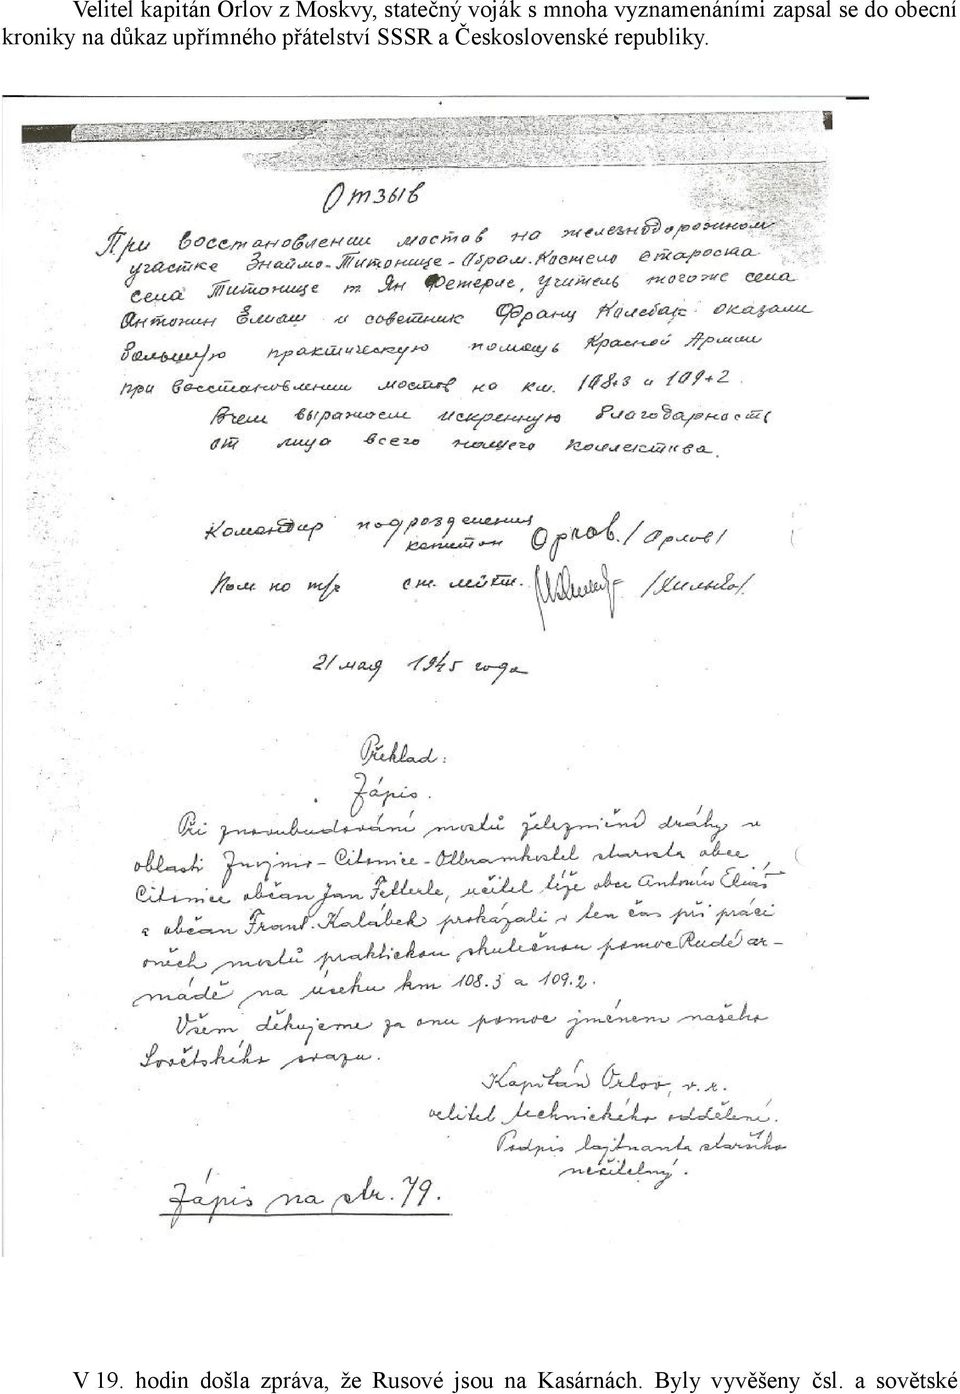 Velitel kapitán Orlov z Moskvy, statečný voják s mnoha vyznamenáními zapsal se do obecní
kroniky na důkaz upřímného přátelství SSSR a Československé republiky.
Отзыв
При восстановлении мостов на железнодорожном
участке Знаймо-Титонице-Абрам.Костело староста
села Титонице т. Ян Фетерле, учитель тогоже села
Антонин Елиаш и советник Франц Калабак оказали
большую практическую помощь Красной Армии
при восстановлении мостов на км. 108+3 и 109+2.
Всем выражаем искренную благодарность
от лица всего нашего коллектива.
Командир подразделения
капитан Орлов. /Орлов/
Пом по т/ч ст. лейт. /Хилько/
21 мая 1945 года
Překlad:
Zápis.
Při znovubudování mostů železniční dráhy v
oblasti Znojmo-Citonice-Olbramkostel starosta obce
Citonice občan Jan Fetterle, učitel téže obce Antonín Eliáš
a občan Frant. Kalábek prokázali v ten čas při práci
oněch mostů praktickou skutečnou pomoc Rudé ar-
mádě na úseku km 108.3 a 109.2.
Všem děkujeme za onu pomoc jménem našeho
Sovětského svazu.
Kapitán Orlov, v.r.
velitel technického oddělení.
Podpis lajtnanta staršího
nečitelný.
Zápis na str. 79.
V 19. hodin došla zpráva, že Rusové jsou na Kasárnách. Byly vyvěšeny čsl. a sovětské